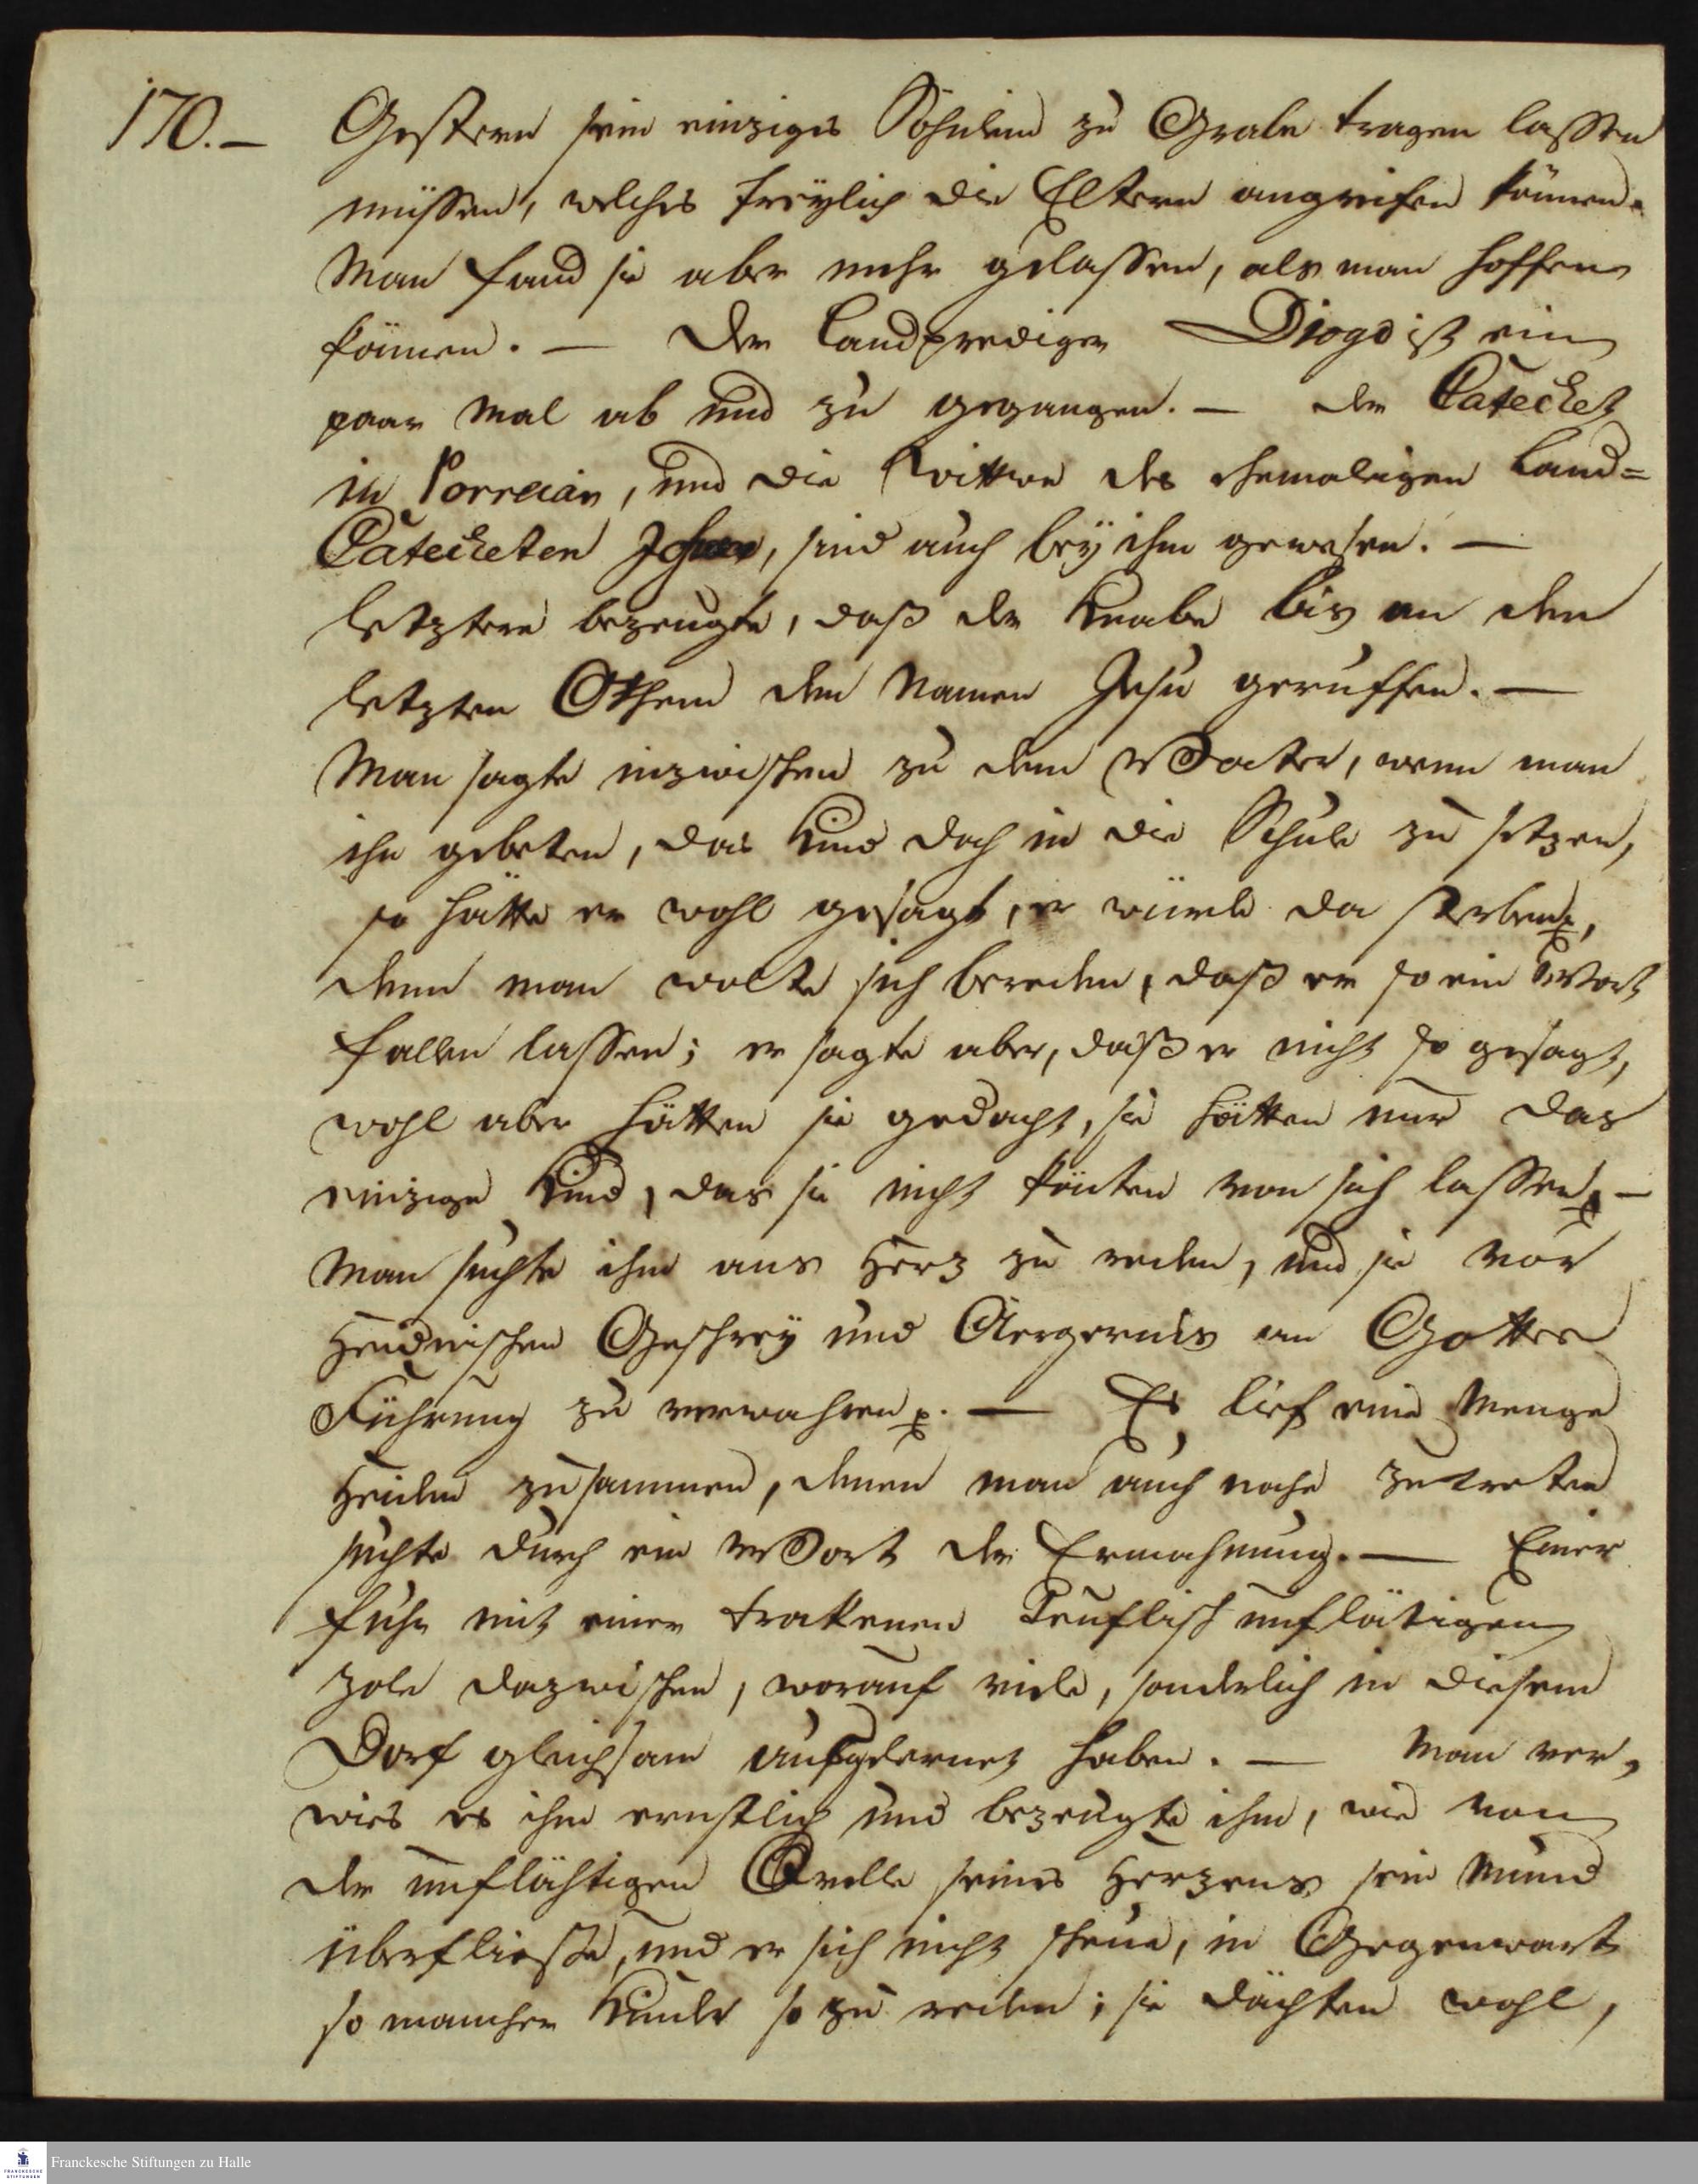 170.–
Gestern sein einziges Söhnlein zu Grabe tragen lassen
müssen, welches freylich die Eltern angreifen können.
Man fand sie aber mehr gelassen, als man hoffen
können. – Der Landprediger Diogo ist ein
paar Mal ab und zu gegangen. – Der Catechet
in Porreiar, und die Wittwe des ehemaligen Land=
Catecheten, sind auch bey ihm gewesen. –
letztere bezeugte, daß der Knabe bis an den
letzten Othem den Namen Jesu geruffen. –
Man sagte inzwischen zu dem Vater, wenn man
ihn gebeten, das Kind doch in die Schule zu setzen,
so hätte er wohl gesagt, er würde da sterben,
denn man wolte sich bereden, daß er so ein Wort
fallen lassen; er sagte aber, daß er nicht so gesagt,
wohl aber hätten sie gedacht, sie hätten nur das
einzige Kind, das sie nicht könten von sich lassen. –
Man suchte ihm ans Herz zu reden, und sie vor
Heidnischen Geschrey und Aergernis an Gottes
Führung zu verwahren. – Es lief eine Menge
Heiden zusammen, denen man auch nahe zutreten
suchte durch ein Wort der Ermahnung. – Einer
fuhr mit einer trakenen Teuflisch unflätigen
Zote dazwischen, worauf viele, sonderlich in diesem
Dorf gleichsam ausgelernet haben. – Man ver,
wies es ihm ernstlich und bezeugte ihm, wie von
der unfläthigen Qvelle seines Herzens sein Mund
überfliesse, und er sich nicht scheue, in Gegenwart
so mancher Kinder so zu reden; sie dächten wohl,
Franckesche Stiftungen zu Halle